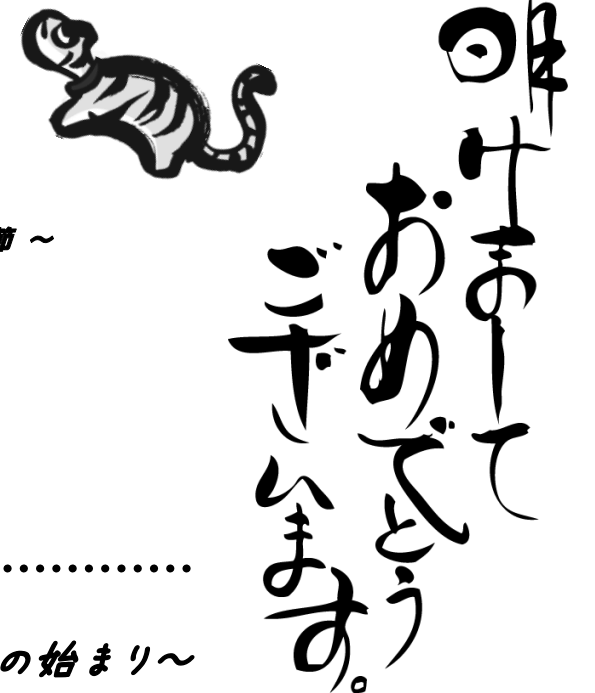 明けまして
おめでとう
ございます。
節 ～
の始まり～